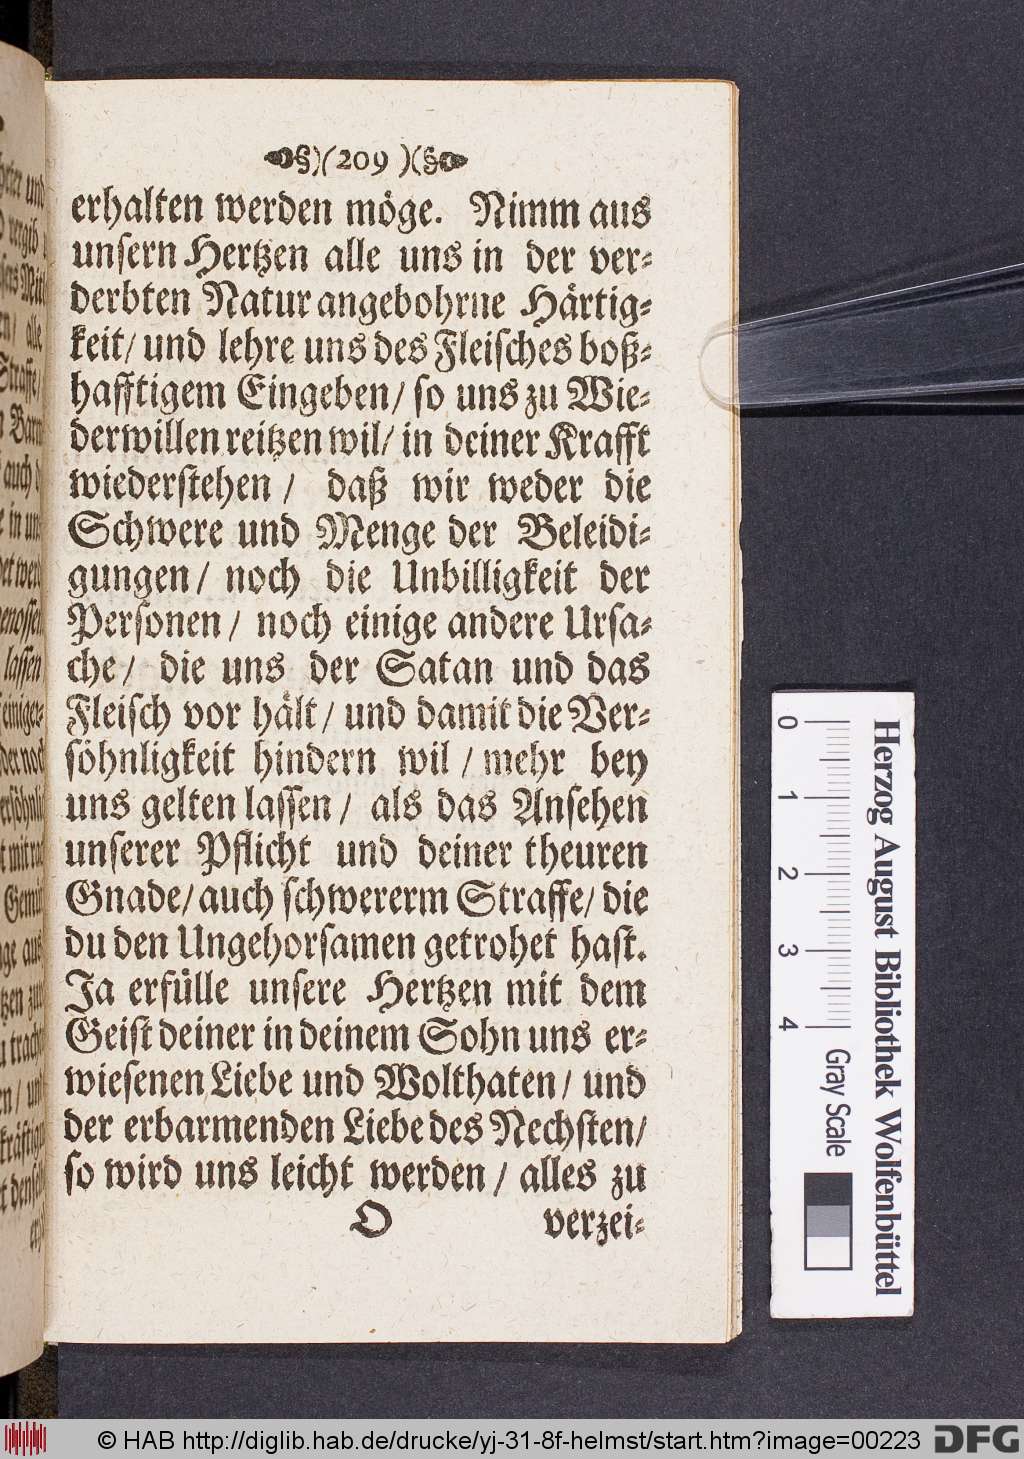 §)(209)(§
erhalten werden möge. Nimm aus
unsern Hertzen alle uns in der ver-
derbten Natur angebohrne Härtig-
keit/ und lehre uns des Fleisches boß-
hafftigem Eingeben/ so uns zu Wie-
derwillen reitzen wil/ in deiner Krafft
wiederstehen / daß wir weder die
Schwere und Menge der Beleidi-
gungen/ noch die Unbilligkeit der
Personen/ noch einige andere Ursa-
che/ die uns der Satan und das
Fleisch vor hält/ und damit die Ver-
söhnligkeit hindern wil / mehr bey
uns gelten lassen / als das Ansehen
unserer Pflicht und deiner theuren
Gnade/ auch schwererm Straffe/ die
du den Ungehorsamen getrohet hast.
Ja erfülle unsere Hertzen mit dem
Geist deiner in deinem Sohn uns er-
wiesenen Liebe und Wolthaten/ und
der erbarmenden Liebe des Nechsten/
so wird uns leicht werden / alles zu
O verzei-
Herzog August Bibliothek Wolfenbüttel
0 1 2 3 4 Gray Scale
© HAB http://diglib.hab.de/drucke/yj-31-8f-helmst/start.htm?image=00223 DFG